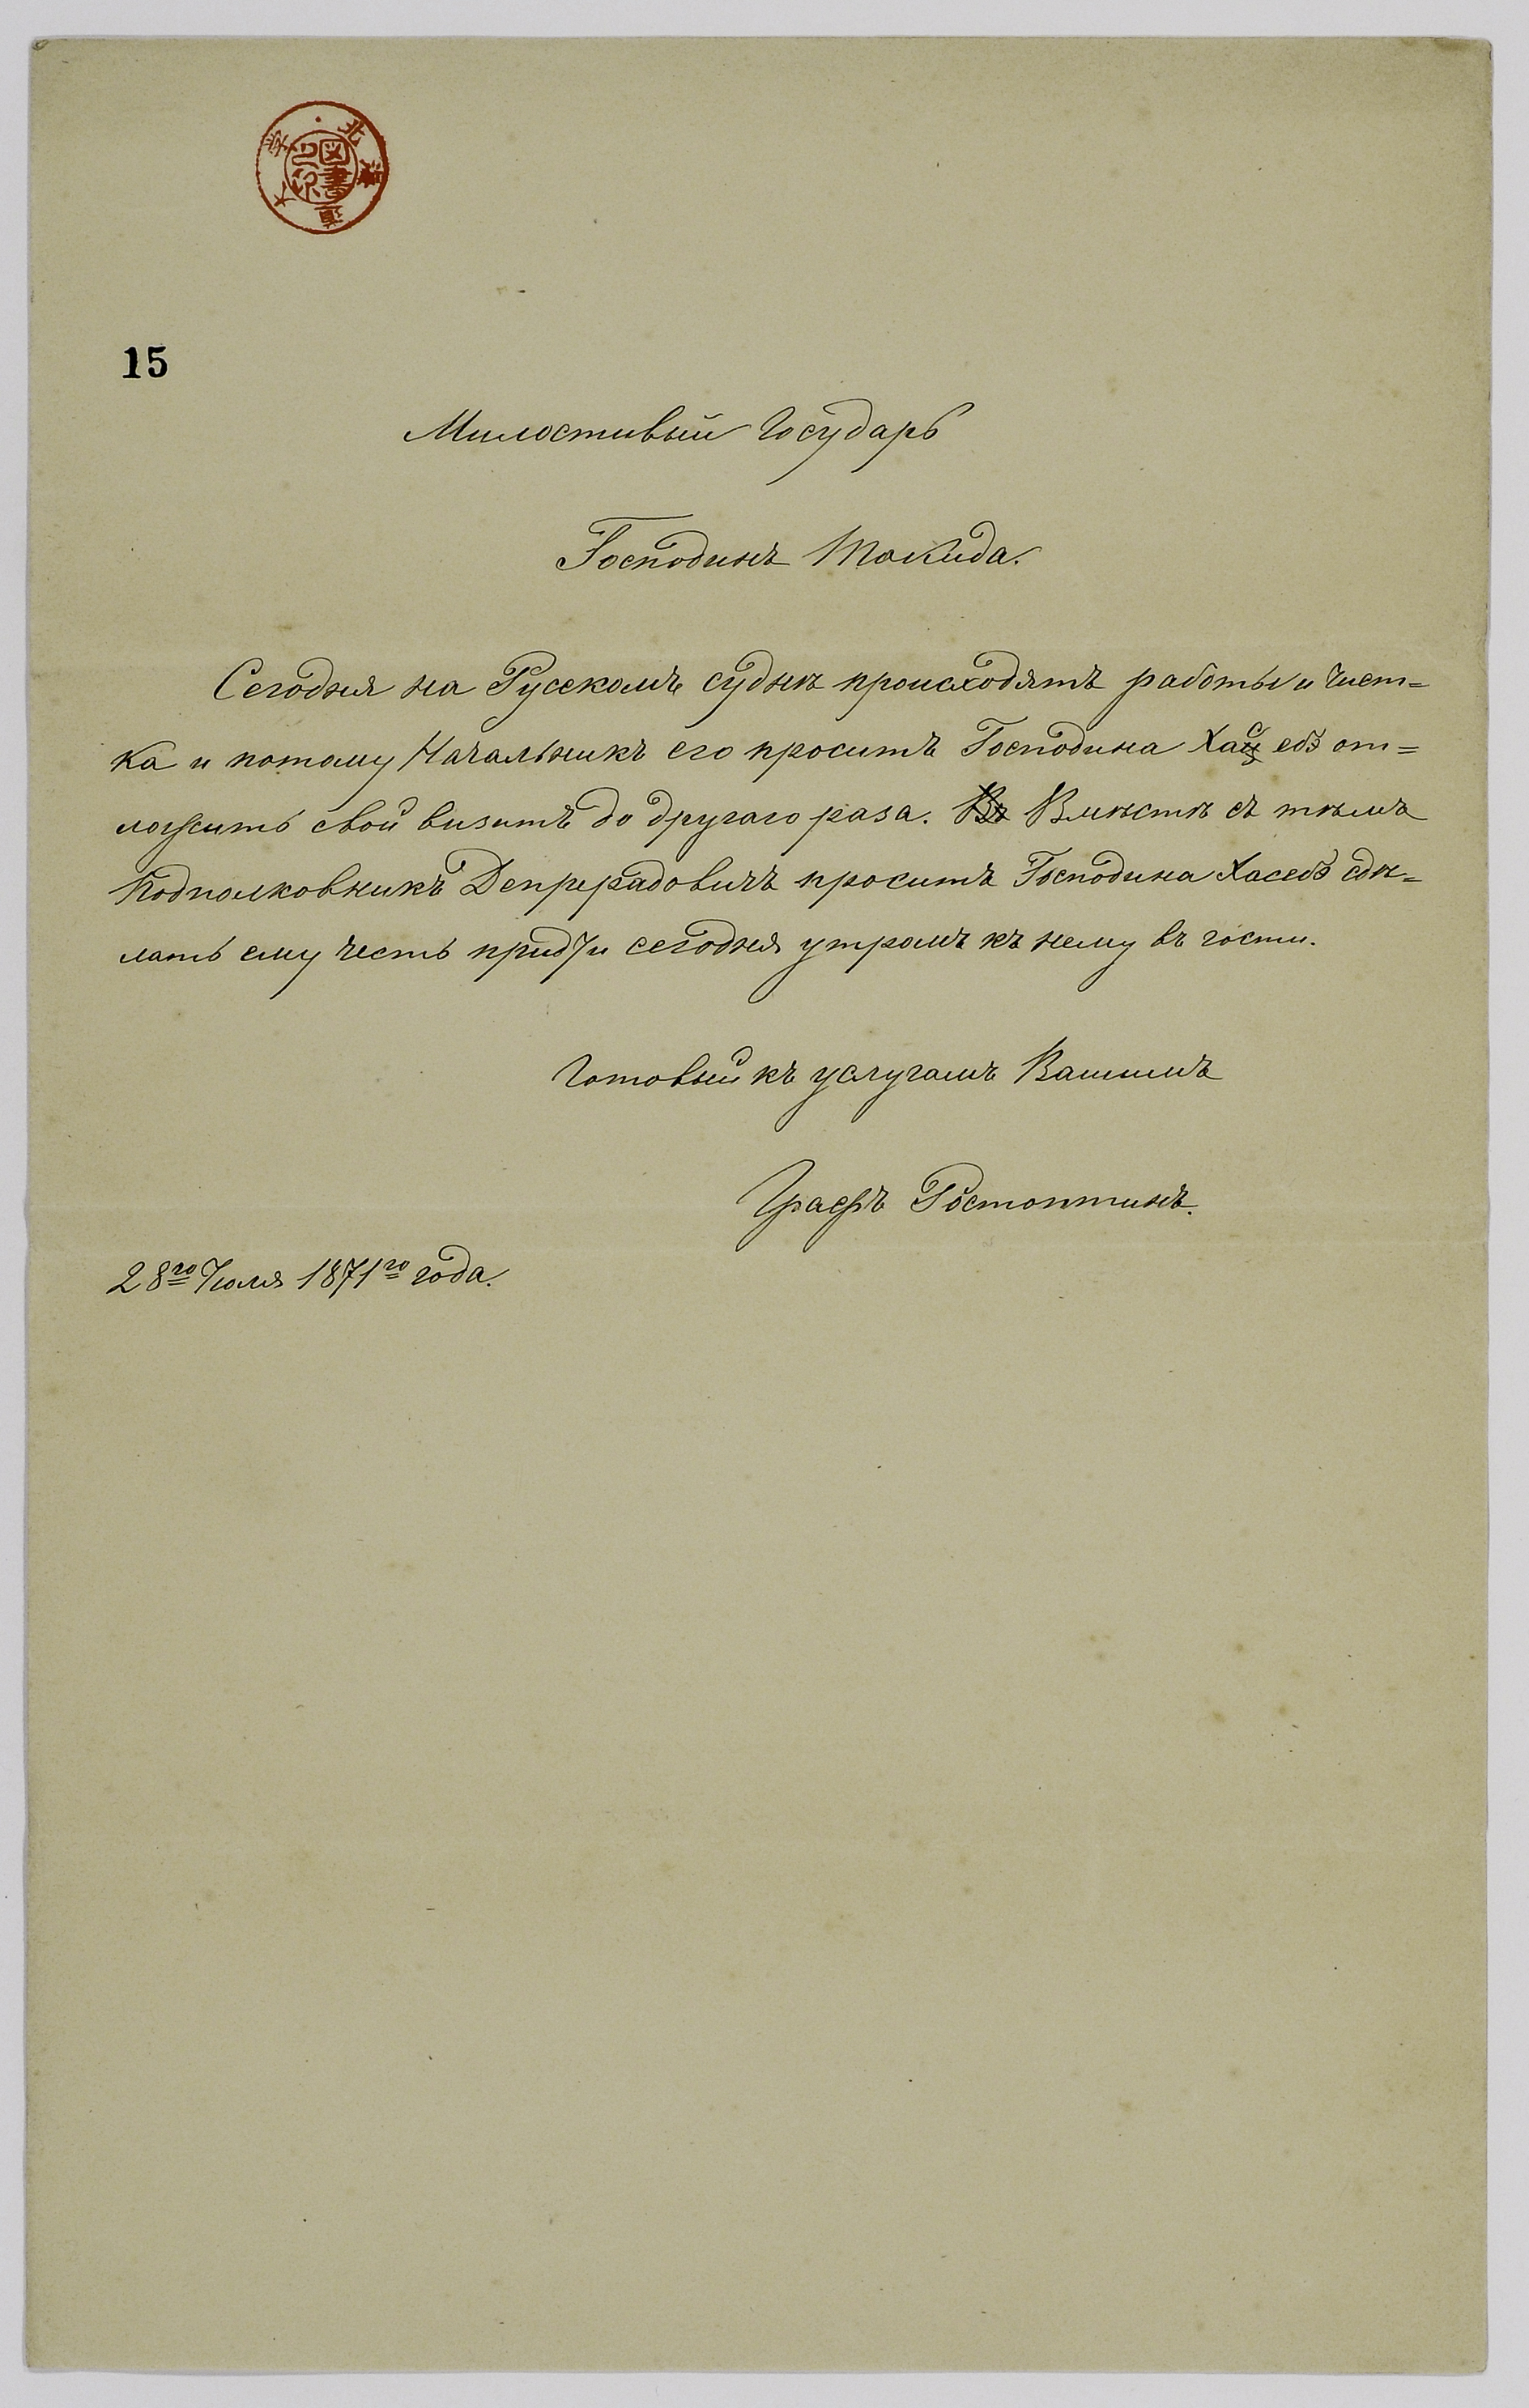 北海道大学
図書之印
15
Милостивый Государь
Господинъ Такида.
Сегодня на Русскомъ суднѣ происходятъ работы и чист=
ка и потому Начальникъ его проситъ Господина Хасебэ от=
ложить свой визитъ до другаго раза. Въ Вмѣстѣ съ тѣмъ
Подполковникъ Депрерадовичъ проситъ Господина Хасебэ сдѣ=
лать ему честь придти сегодня утромъ къ нему въ гости.
Готовый къ услугамъ Вашимъ
Графъ Ростоптинъ.
28го Июля 1871го года.